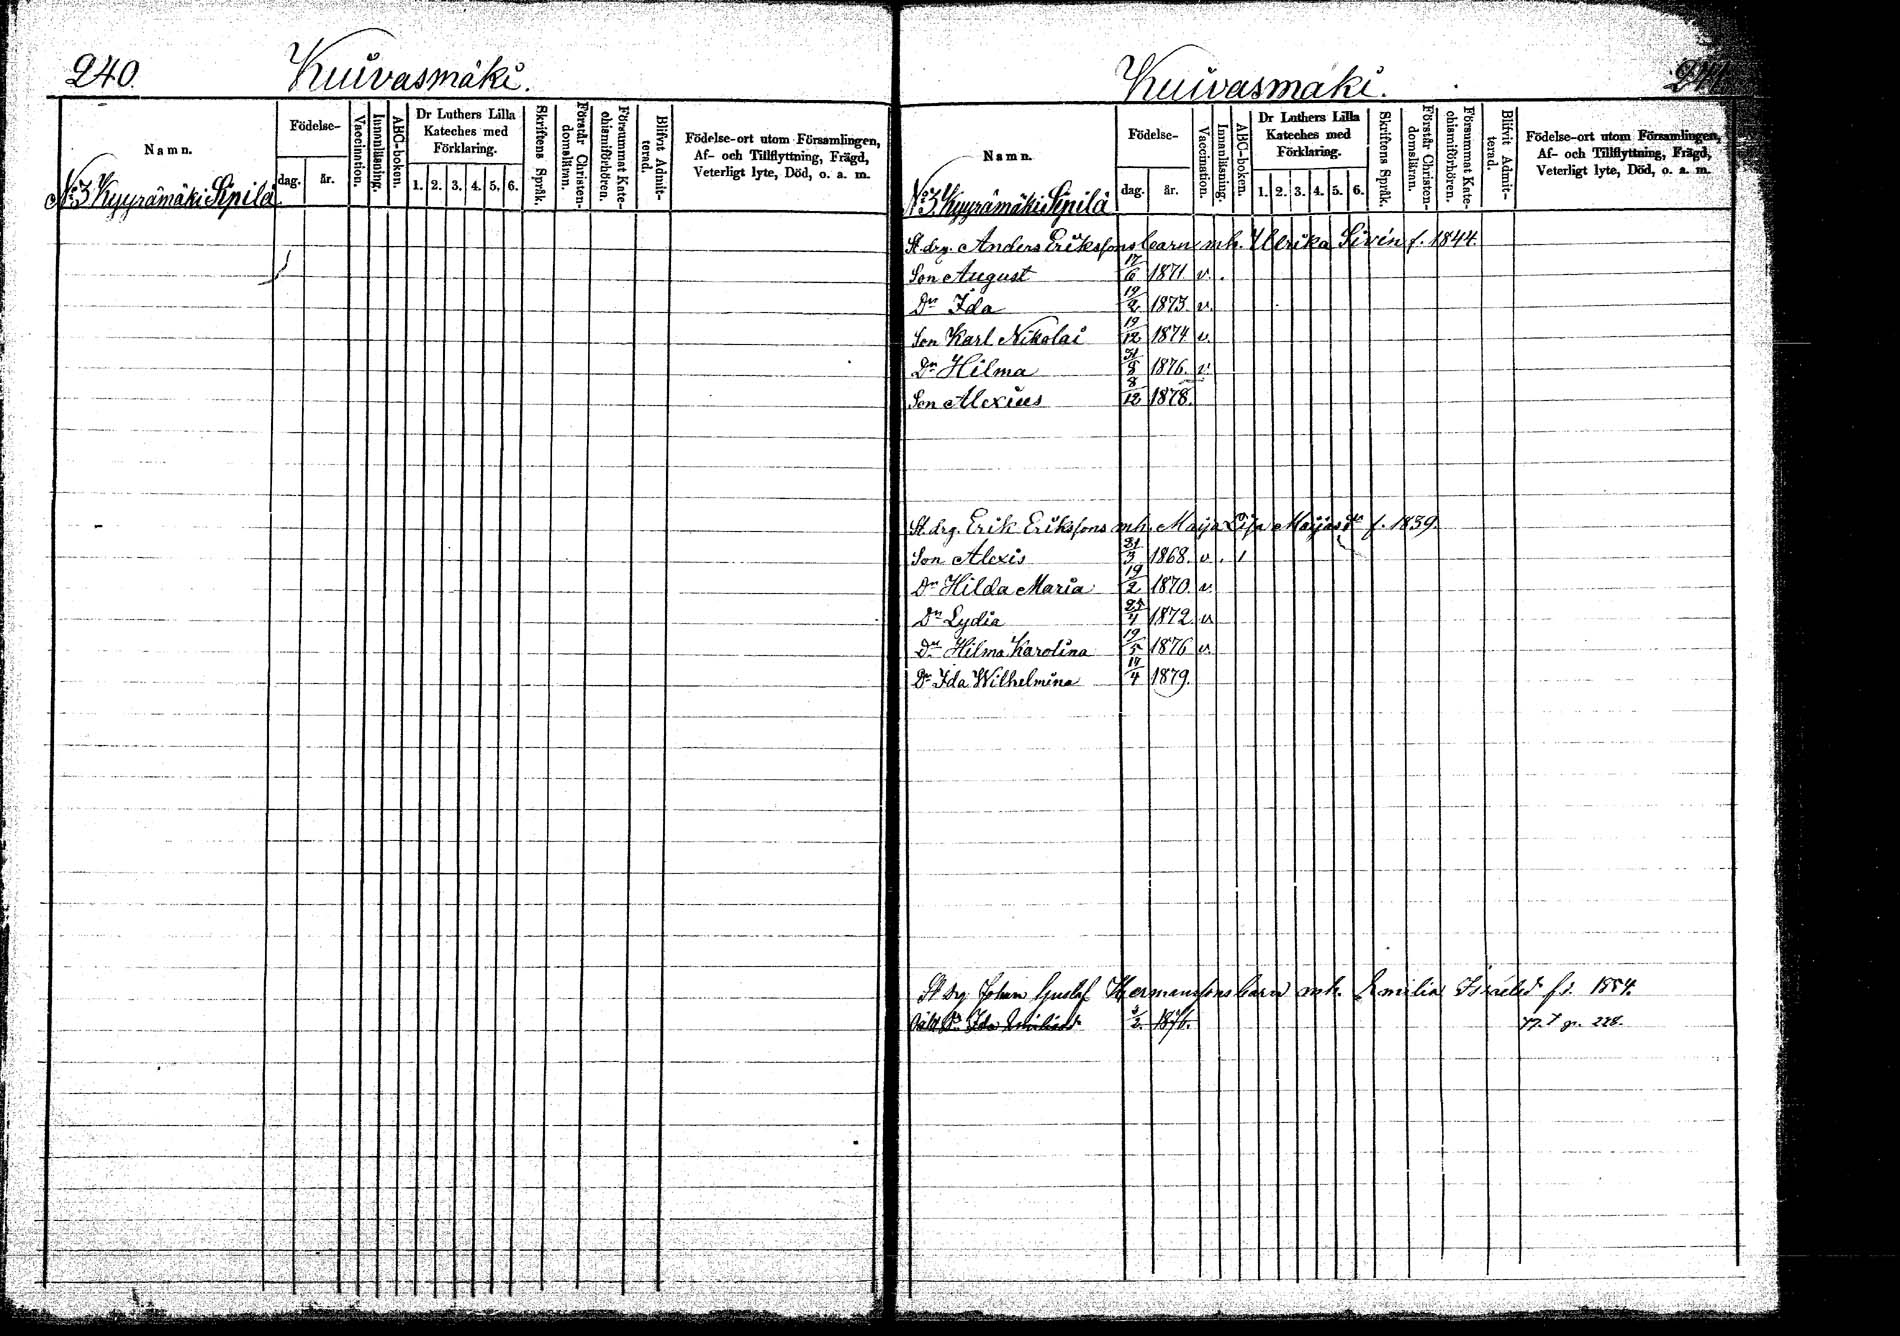 240.
Kuivasmäki.
Namn.
Födelse-
dag.
år.
Vaccination.
Innanläsning.
ABC-boken.
Dr Luthers Lilla
Kateches med
Förklaring.
1. 2. 3. 4. 5. 6.
Skriftens Språk.
Förstår Christen-
domsläran.
Försummat Kate-
chismiförhören.
Blifvit Admit-
terad.
Födelse-ort utom Församlingen,
Af- och Tillflyttning, Frägd,
Veterligt lyte, Död, o. a. m.
No 3 Kyyrämäki Sipilä
Kuivasmäki.
241
Namn.
Födelse-
dag.
år.
Vaccination.
Innanläsning.
ABC-boken.
Dr Luthers Lilla
Kateches med
Förklaring.
1. 2. 3. 4. 5. 6.
Skriftens Språk.
Förstår Christen-
domsläran.
Försummat Kate-
chismiförhören.
Blifvit Admit-
terad.
Födelse-ort utom Församlingen,
Af- och Tillflyttning, Frägd,
Veterligt lyte, Död, o. a. m.
No 3. Kyyrämäki Sipilä
St. drg. Anders Erikssons barn mh. Ulrika Sivén f. 1844.
Son August 17/6 1871 v.
Dr Ida 19/2 1873 v.
Son Karl Nikolai 19/12 1874 v.
Dr Hilma 31/8 1876. v.
Son Alexius 8/12 1878.
St. drg. Erik Erikssons mh. Maija Lisa Maijasdr f. 1839.
Son Alexis 31/3 1868. v. 1
Dr Hilda Maria 19/2 1870. v.
Dr Lydia 1872. v
Dr Hilma Karolina 19/5 1876 v.
Dr Ida Wilhelmina 14/4 1879.
St drg Johan Gustaf Hermanssons barn mh. Emilia Israelsd. fd. 1854.
Dr Ida 1876. 228.